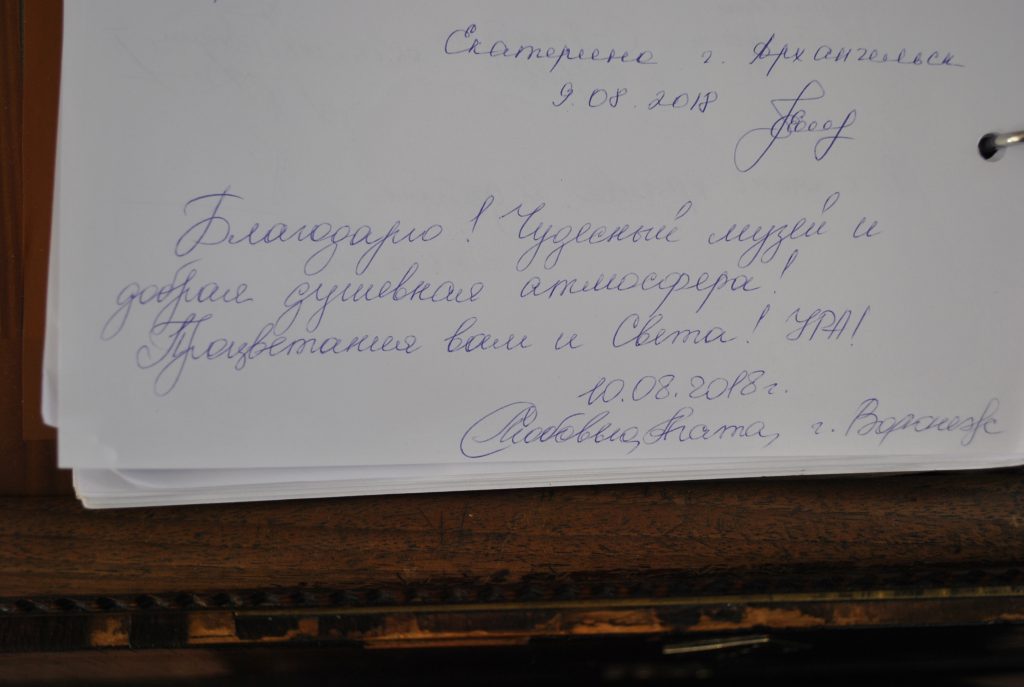 Екатерина г. Архангельск
9.08.2018
Благодарю! Чудесный музей и
добрая душевная атмосфера!
Процветания вам и Света! УРА!
10.08.2018г.
г. Воронеж